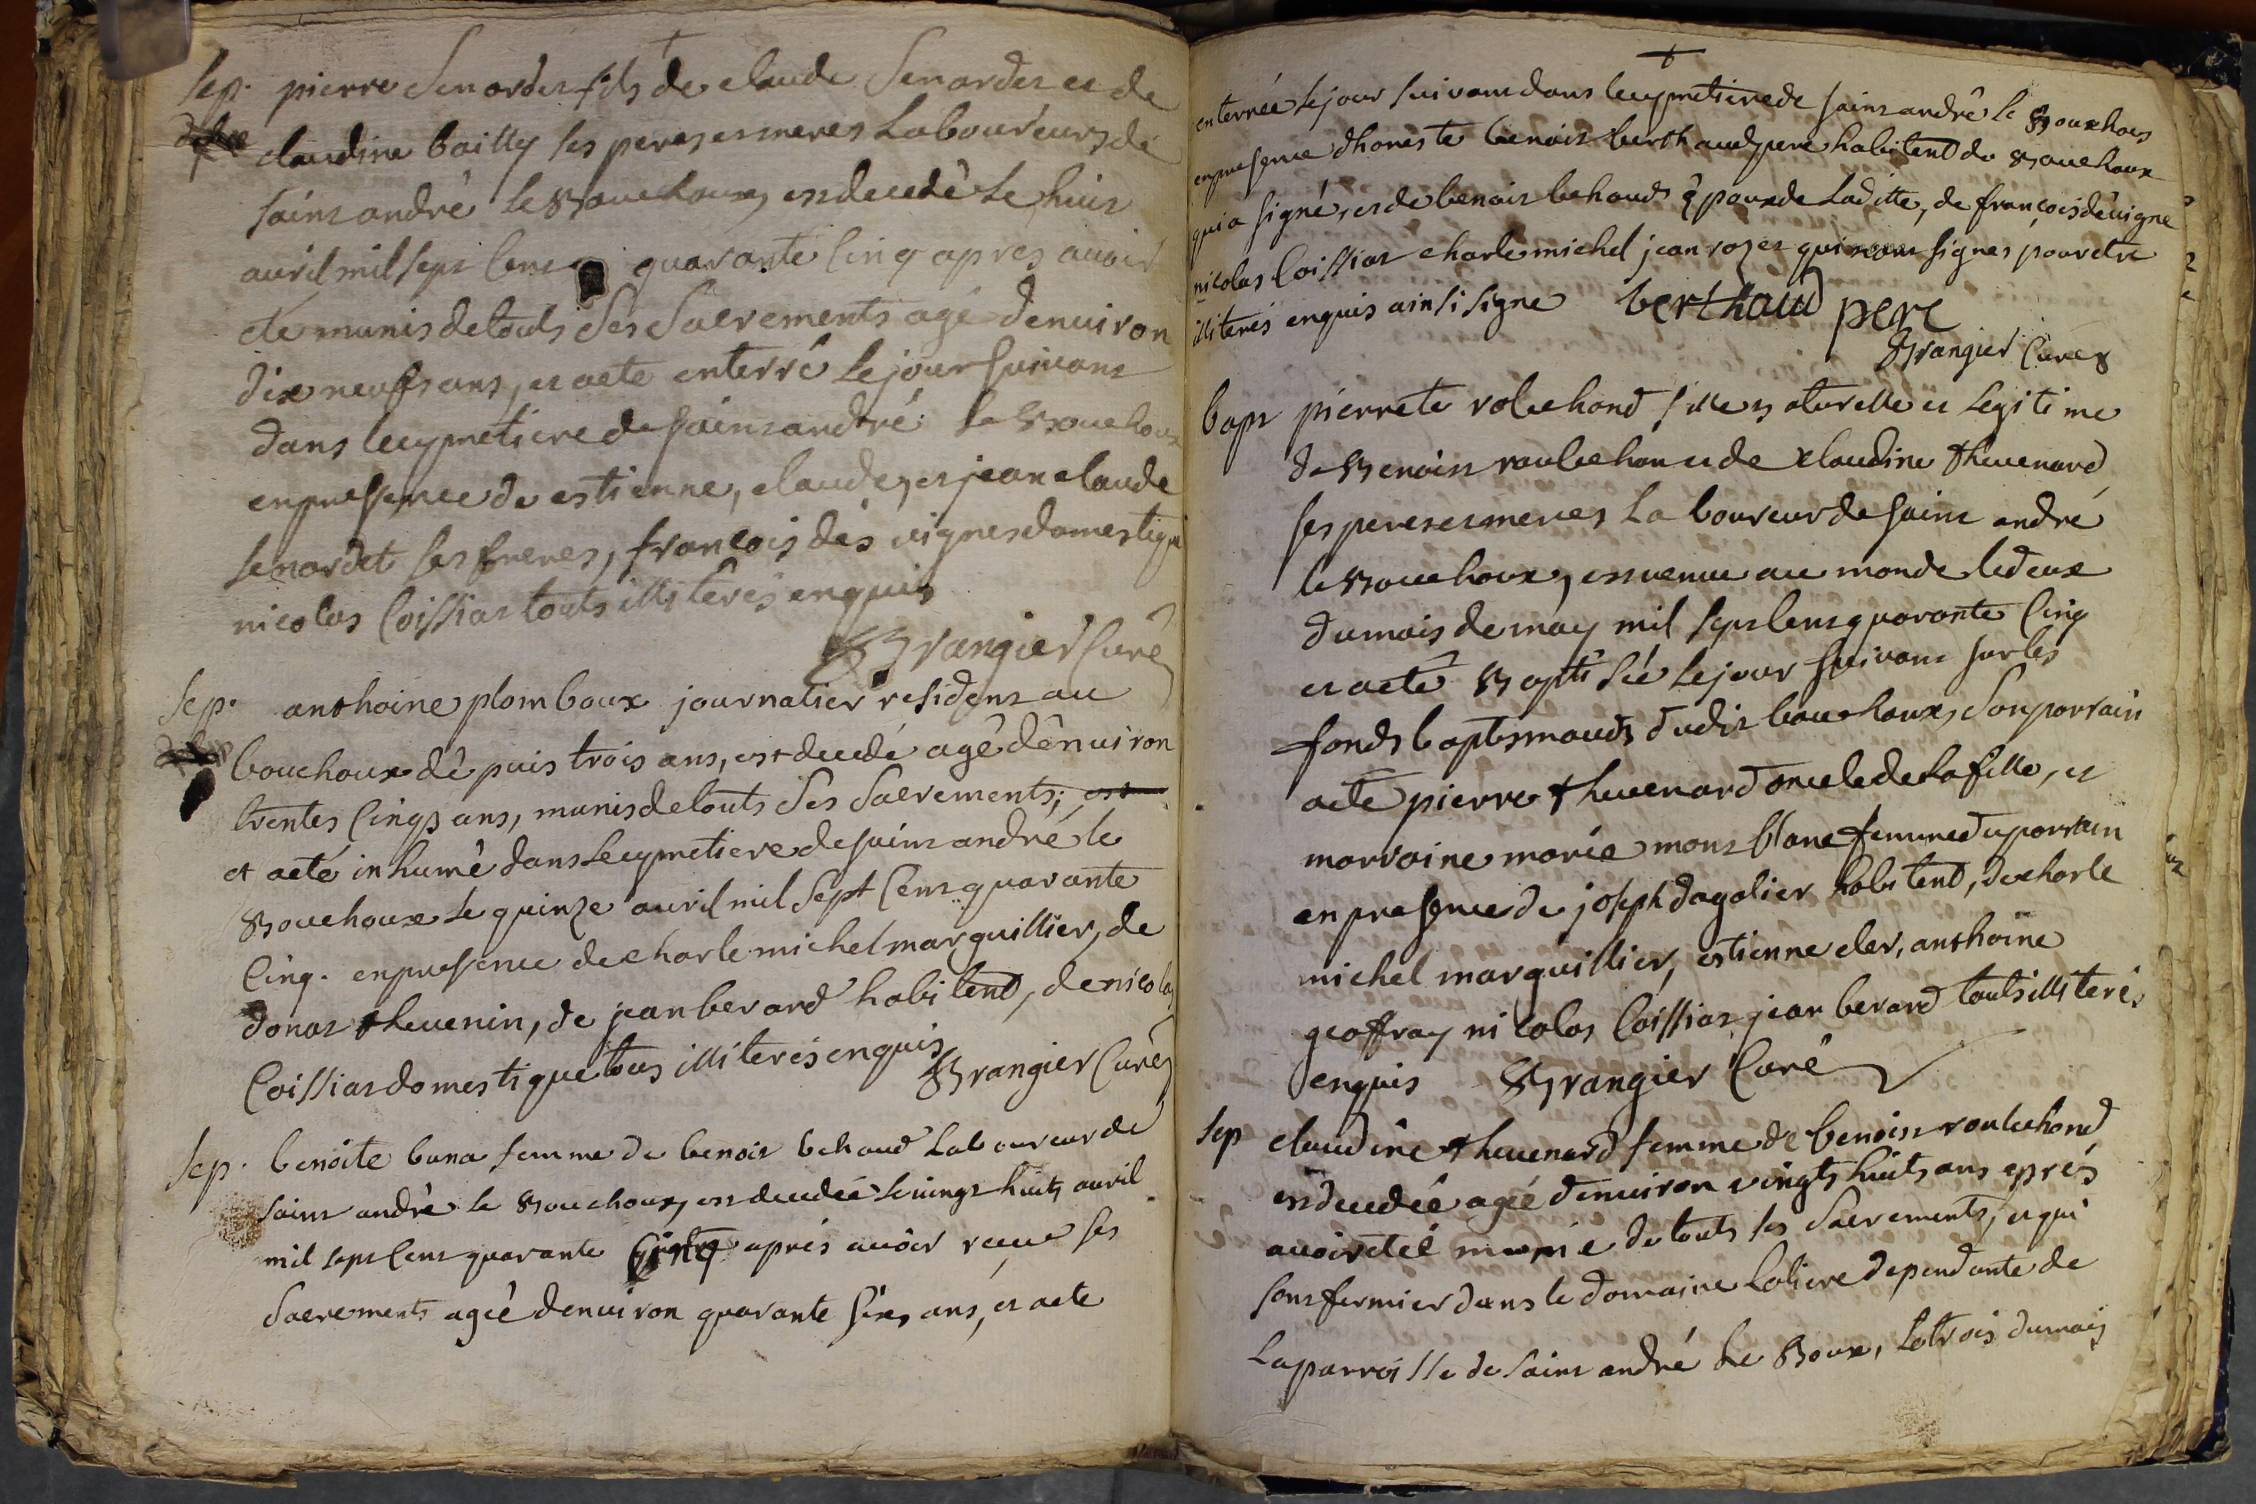 sep. pierre Senordet fils de claude Senordet et de
claudine bailly ses peres et meres Laboureurs de
saint andré le Bouchoux, est decedé le huit
avril mil sept cent quarante cinq apres avoir
eté munis de touts Ses Sacrements agé denviron
dix neufs ans, et aeté enterré le jour suivant
dans lecymetiere de saint andré le Bouchoux
enpresence de estienne, claude, et jean claude
senordet ses freres, francois dés vignes domestique
nicolas Coissiat touts illiterés enquis
Brangier Curé
sep. anthoine plomboux journalier resident au
bouchoux dépuis trois ans, est decedé agé dênviron
trentes cinqs ans, munis de touts Ses Sacrements;
et aeté inhumé dans lecymetiere de saint andré le
Bouchoux le quinze avril mil Sept Cent quarante
Cinq. enpresence de charle michel marguillier, de
donat thevenin, de jean berard habitent, de nicolas
Coissiat domestique tous illiterés enquis
Brangier Curé
sep. benoite buna femme de benoit behaud Laboureur de
saint andré le Bouchoux, est decedée le vingt huits avril
mil sept Cent quarante Cinq aprés avoir reçue ses
Sacrements ageé denviron quarante sixs ans, et aeté
enterrée lejour suivant dans lecymetiere de saint andré le Bouxhous
enpresence dhoneste benoit berthaud pere habitent du Bouchoux
qui a signé, et de benoit behaud époux de Laditte, de françois dêvigne
nicolas Coissiat charle michel jean rozet qui nont signes pour etre
illiterés enquis ainsi signe berthaud pere
Brangier Curé
bapt pierrete robehond fille naturelle et legitime
de Benoist roubehon et de claudine thevenard
ses peres et meres laboureur de saint andré
le Bouchoux, est venue au monde le deux
du mois de may mil sept Cent quarante Cinq
et aeté Baptisée le jour suivant sur les
fonds baptismauds dudit bouchoux, Son parrain
aeté pierre thevenard oncle de la fille, et
marraine marie mont blanc femme du parrain
en presence de joseph dagalier habitent, de charle
michel marguillier, estienne cler, anthoine
geoffray nicolas Coissiat jean berard touts illiterés
enquis Brangier Curé
sep claudine thevenard femme de benoist roubehond
est decedée ageé denviron vingts huits ans aprés
avoir eteé munie de touts ses Sacrements, et qui
sont fermier dans le domaine Loliere dependante de
laparroisse de saint andré Le Boux, Le trois du mois